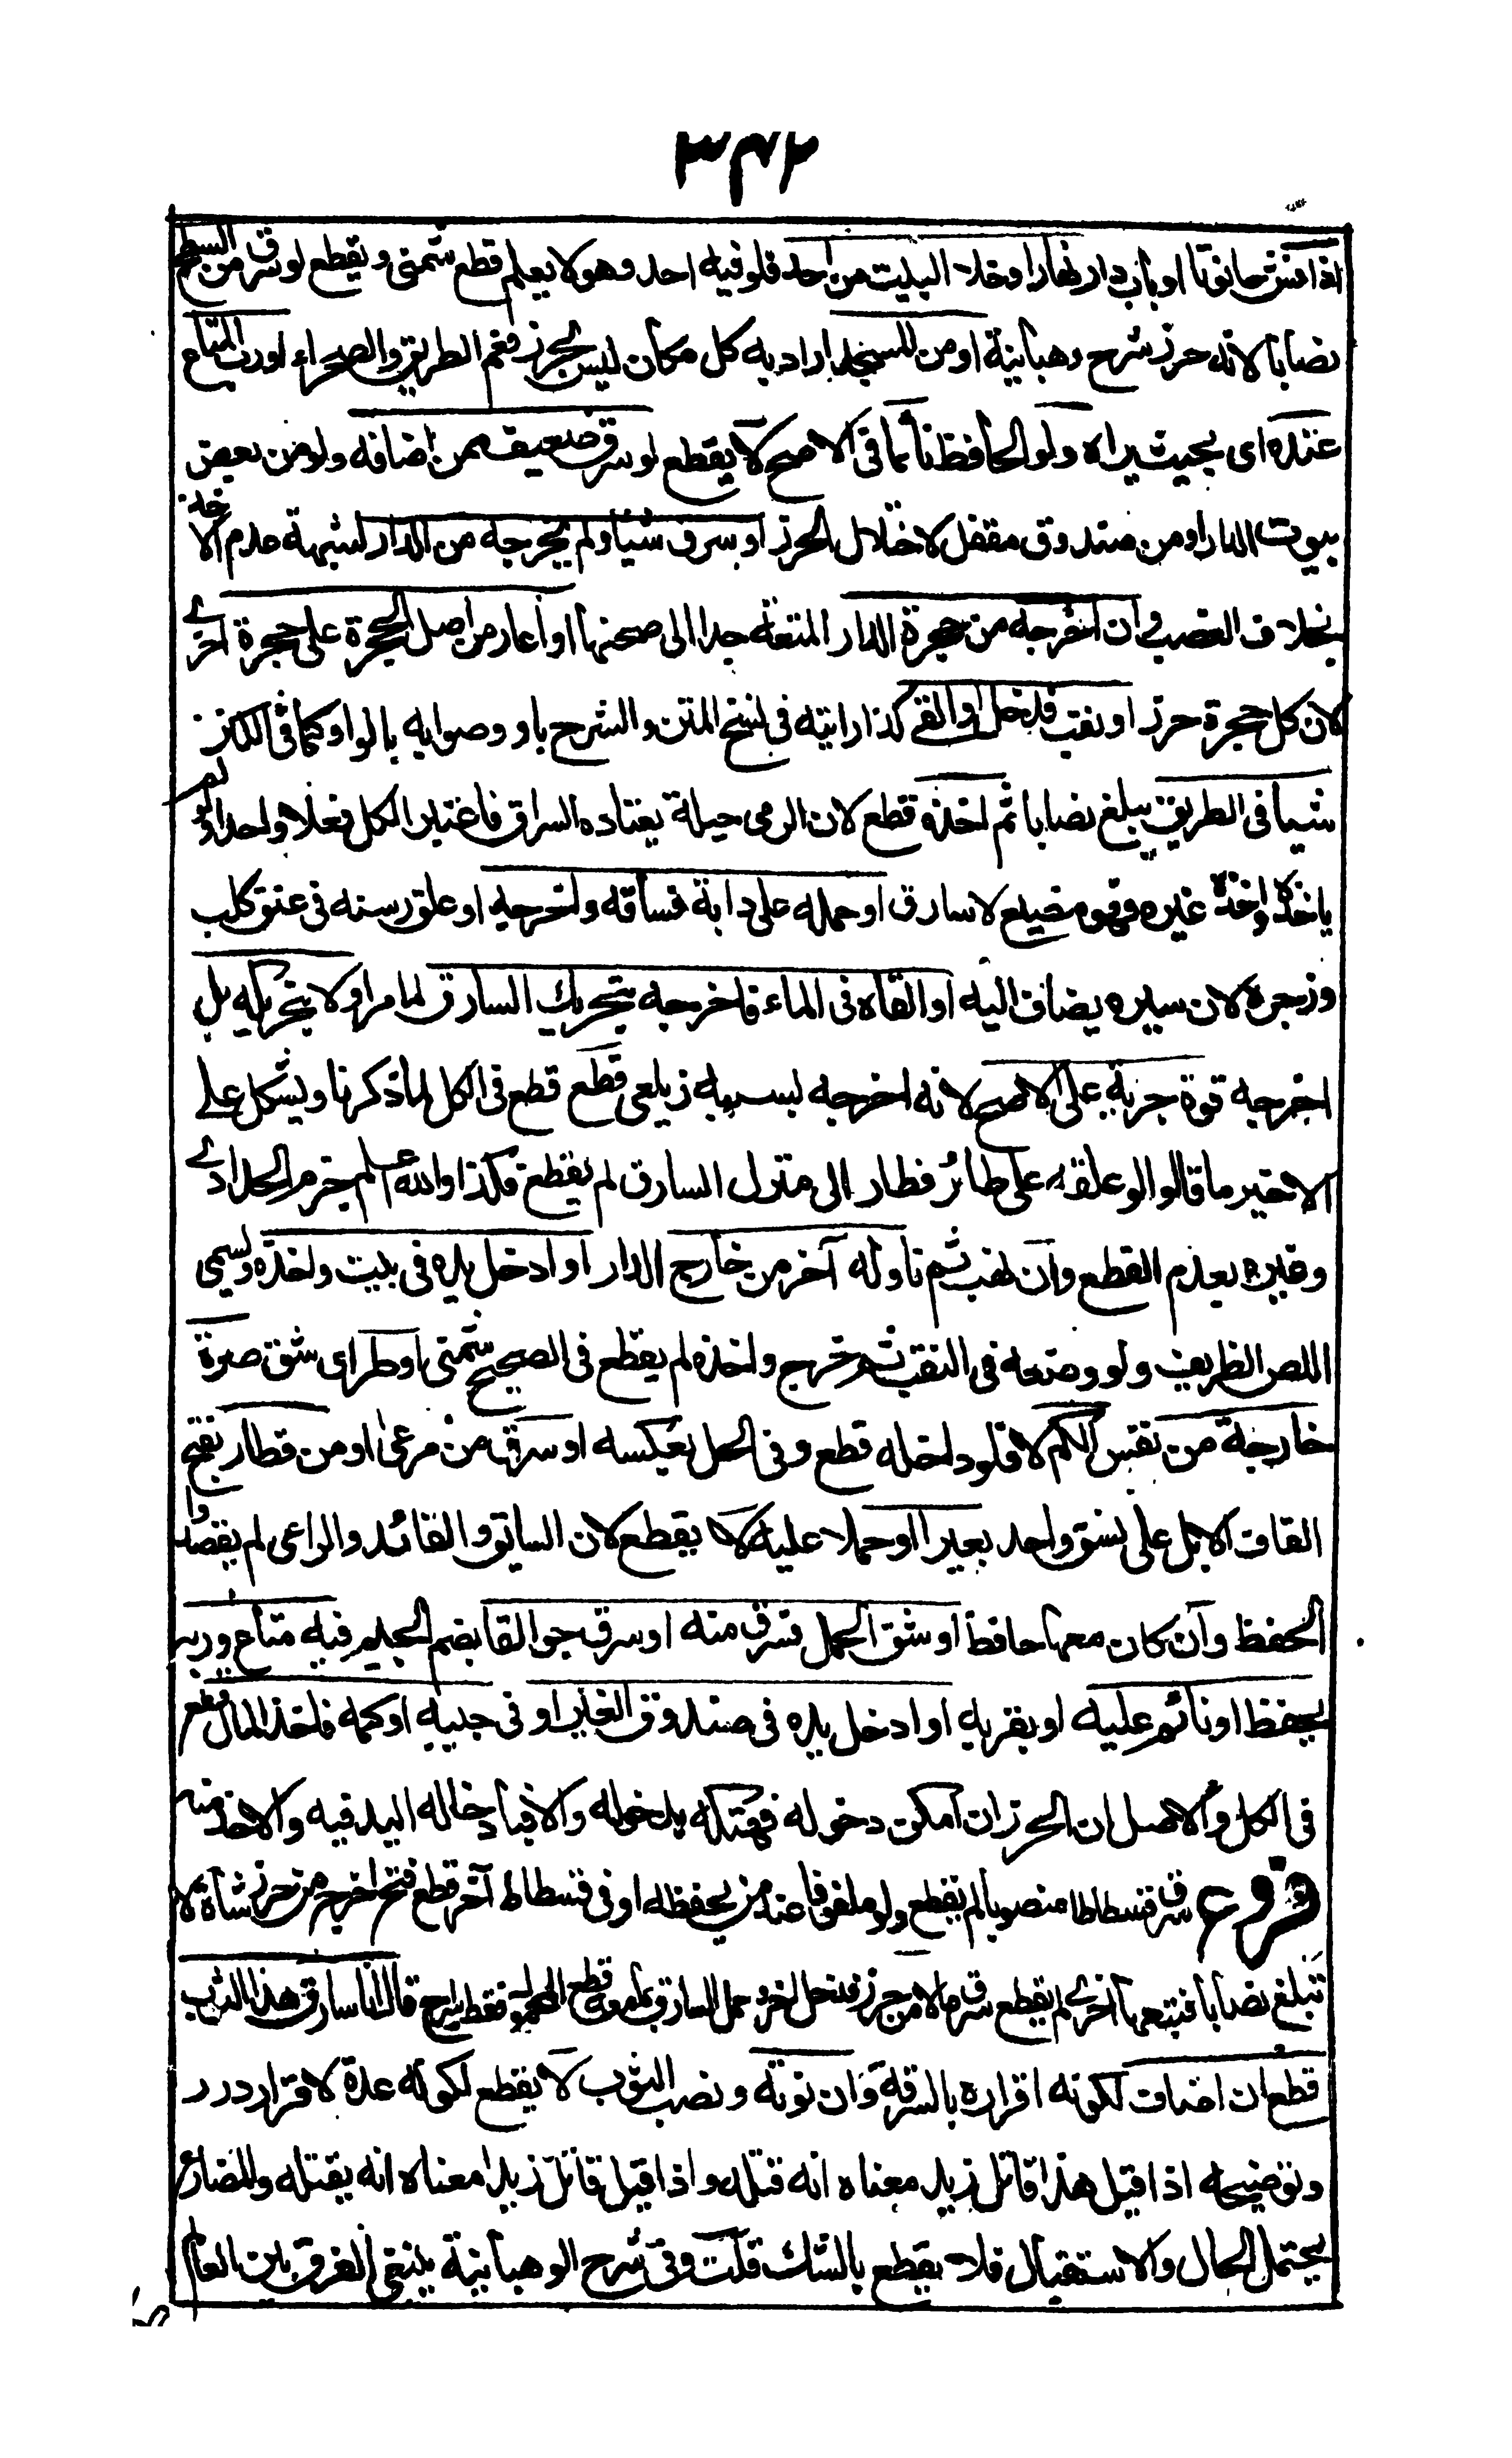 ٣٤٢
اذا فش حانوتا او باب دار نهارا وخلا البيت من احد فلو فيه احد وهو لا يعلم قطع شمنى ويقطع لو سرق من السطح
نصابا لانه حرز شرح وهبانية او من المسجد اراد به كل مكان ليس بحرز فعم الطريق والصحراء او رب المتاع
عنده اى بحيث يراه ولو الحافظ نائما فى الاصح لا يقطع لو سرق ضعيف ممن اضافه ولو من بعض
بيوت الدار او من صندوق مقفل لاختلال الحرز او سرق شيئا ولم يخرجه من الدار لشبهة عدم الاخذ
بخلاف الغصب وان اخرجه من حجرة الدار المتسعة جدا الى صحنها او اغار من اهل الحجرة على حجرة اخرى
لان كل حجرة حرز او نقب فدخل او القى كذا رايته فى نسخ المتن والشرح باو وصوابه بالواو كما فى الكنز
شيئا فى الطريق يبلغ نصابا ثم اخذه قطع لان الرمى حيلة يعتاده السراق فاعتبر الكل فعلا واحدا ولو لم
ياخذه واخذه غيره فهو مضيع لا سارق او حمله على دابة فساقه واخرجه او علق رسنه فى عنق كلب
وزجره لان سيره يضاف اليه او القاه فى الماء فاخرجه بتحريك السارق لما مر او لا بتحريكه بل
اخرجه قوة جريه على الاصح لانه اخرجه بسببه زيلعى قطع قطع فى الكل لما ذكرنا ويشكل على
الاخير ما قالوا لو علقه على طائر فطار الى منزل السارق لم يقطع فلذا والله اعلم جزم الحدادى
وغيره بعدم القطع وان نقب ثم ناوله آخر من خارج الدار او ادخل يده فى بيت واخذه ويسمى
اللص الظريف ولو وضعه فى النقب ثم خرج واخذه لم يقطع فى الصحيح شمنى او طر اى شق صرة
خارجة من نفس الكم لا فلو داخله قطع وفى الحل بعكسه او سرق من مرعى او من قطار بفتح
القاف الابل على نسق واحد بعيرا او حملا عليه لا يقطع لان السائق والقائد والراعى لم يقصدوا
الحفظ وان كان معها حافظ او شق الحمل فسرق منه او سرق جوالقا بضم الجيم فيه متاع وربه
يحفظ او نائم عليه او بقربه او ادخل يده فى صندوق الغير او فى جيبه او كمه فاخذ المال قطع
فى الكل والاصل ان الحرز ان امكن دخوله فهتكه بدخوله والا فبادخاله اليد فيه والاخذ منه
فروع سرق فسطاطا منصوبا لم يقطع ولو ملفوفا عند من يحفظه او فى فسطاط آخر قطع فتح اخرج من حرز شاة لا
تبلغ نصابا فتبعها اخرى لم يقطع سرق مالا من حرز فدخل آخر وحمل السارق بما معه قطع المحمول فقط سراج قال انا سارق هذا الثوب
قطع ان اضاف لكونه اقراره بالسرقة وان نونه ونصب الثوب لا يقطع لكونه عدة لا اقرار درر
وتوضيحه اذا قيل هذا قاتل زيد معناه انه قتله واذا قيل قاتل زيدا معناه انه يقتله والمضارع
يحتمل الحال والاستقبال فلا يقطع بالشك قلت وفى شرح الوهبانية ينبغى الفرق بين العالم